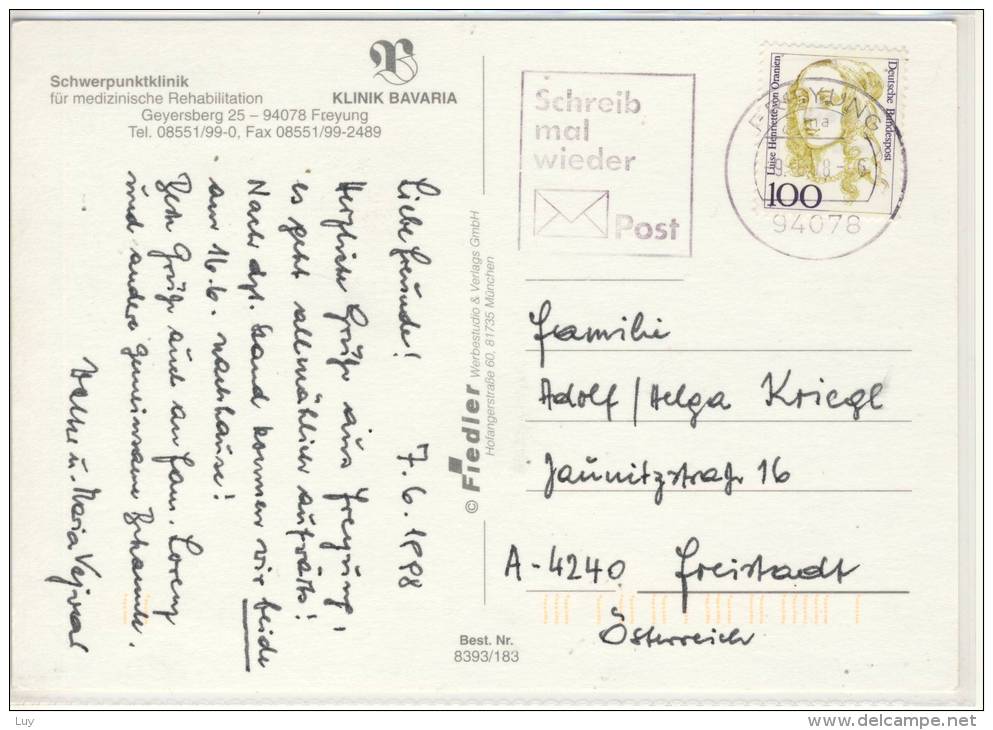 Schwerpunktklinik
für medizinische Rehabilitation
KLINIK BAVARIA
Geyersberg 25 – 94078 Freyung
Tel. 08551/99-0, Fax 08551/99-2489
Schreib
mal
wieder
Post
Luise Henriette von Oranien
Deutsche Bundespost
100
FREYUNG
94078
7.6.1998
Liebe Freunde!
Herzliche Grüße aus Freyung!
es geht allmählich aufwärts!
Nach dzt. Stand kommen wir beide
am 16.6. nachhause!
Beste Grüße auch an Fam. Lorenz
und andere gemeinsame Bekannte.
u. Maria
© Fiedler Werbestudio & Verlags GmbH
Hofangerstraße 60, 81735 München
Familie
Adolf/Helga Kriegl
Jaunitzstraße 16
A-4240 Freistadt
Österreich
Best. Nr.
8393/183
Luy
www.delcampe.net